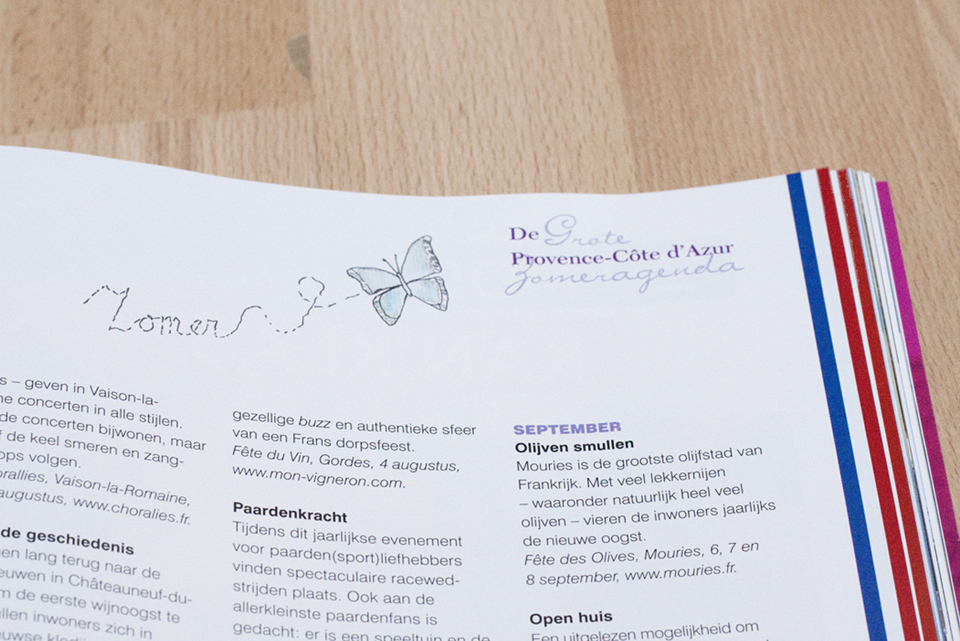 De Grote
Provence-Côte d'Azur
Zomeragenda
Zomer
s – geven in Vaison-la-
ne concerten in alle stijlen.
de concerten bijwonen, maar
f de keel smeren en zang-
ops volgen.
orallies, Vaison-la-Romaine,
augustus, www.choralies.fr.
de geschiedenis
en lang terug naar de
euwen in Châteauneuf-du-
m de eerste wijnoogst te
llen inwoners zich in
gezellige buzz en authentieke sfeer
van een Frans dorpsfeest.
Fête du Vin, Gordes, 4 augustus,
www.mon-vigneron.com.
Paardenkracht
Tijdens dit jaarlijkse evenement
voor paarden(sport)liefhebbers
vinden spectaculaire racewed-
strijden plaats. Ook aan de
allerkleinste paardenfans is
gedacht: er is een speeltuin en de
SEPTEMBER
Olijven smullen
Mouries is de grootste olijfstad van
Frankrijk. Met veel lekkernijen
– waaronder natuurlijk heel veel
olijven – vieren de inwoners jaarlijks
de nieuwe oogst.
Fête des Olives, Mouries, 6, 7 en
8 september, www.mouries.fr.
Open huis
Een uitgelezen mogelijkheid om